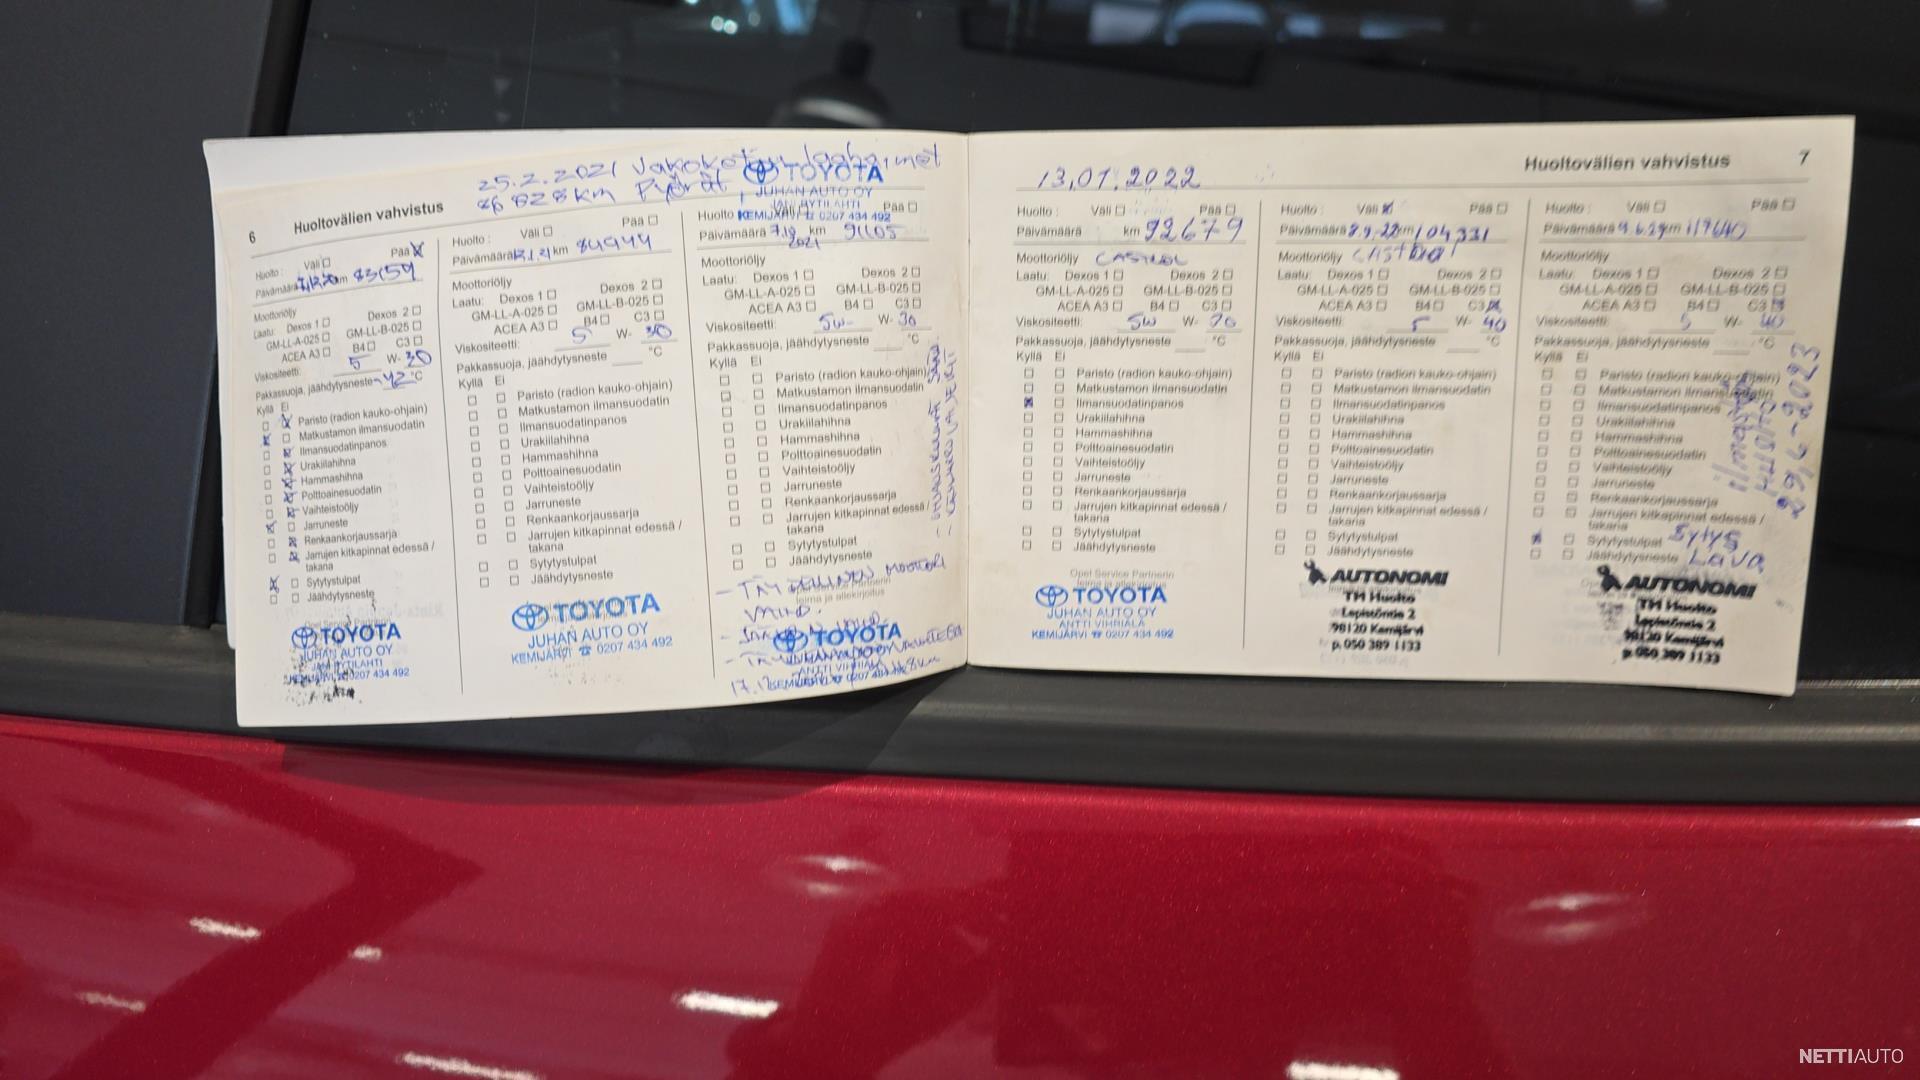 25.2.2021 Jakoketju
86828km Pyörät
TOYOTA
JUHAN AUTO OY
JANI PYTILAHTI
KEMIJÄRVI ☎ 0207 434 492
6 Huoltovälien vahvistus
Huolto : Väli Pää
Päivämäärä km 83159
Moottoriöljy
Laatu: Dexos 1 Dexos 2
GM-LL-A-025 GM-LL-B-025
ACEA A3 B4 C3
Viskositeetti: 5 W- 30
Pakkassuoja, jäähdytysneste -42 °C
Kyllä Ei
Paristo (radion kauko-ohjain)
Matkustamon ilmansuodatin
Ilmansuodatinpanos
Urakiilahihna
Hammashihna
Polttoainesuodatin
Vaihteistoöljy
Jarruneste
Renkaankorjaussarja
Jarrujen kitkapinnat edessä /
takana
Sytytystulpat
Jäähdytysneste
TOYOTA
JUHAN AUTO OY
JANI PYTILAHTI
KEMIJÄRVI ☎ 0207 434 492
Huolto : Väli Pää
Päivämäärä 13.1.21 km 84944
Moottoriöljy
Laatu: Dexos 1 Dexos 2
GM-LL-A-025 GM-LL-B-025
ACEA A3 B4 C3
Viskositeetti: 5 W- 30
Pakkassuoja, jäähdytysneste °C
Kyllä Ei
Paristo (radion kauko-ohjain)
Matkustamon ilmansuodatin
Ilmansuodatinpanos
Urakiilahihna
Hammashihna
Polttoainesuodatin
Vaihteistoöljy
Jarruneste
Renkaankorjaussarja
Jarrujen kitkapinnat edessä /
takana
Sytytystulpat
Jäähdytysneste
TOYOTA
JUHAN AUTO OY
KEMIJÄRVI ☎ 0207 434 492
Huolto Väli Pää
Päivämäärä 7.10 km 91105
2021
Moottoriöljy
Laatu: Dexos 1 Dexos 2
GM-LL-A-025 GM-LL-B-025
ACEA A3 B4 C3
Viskositeetti: 5w- W- 30
Pakkassuoja, jäähdytysneste °C
Kyllä Ei
Paristo (radion kauko-ohjain)
Matkustamon ilmansuodatin
Ilmansuodatinpanos
Urakiilahihna
Hammashihna
Polttoainesuodatin
Vaihteistoöljy
Jarruneste
Renkaankorjaussarja
Jarrujen kitkapinnat edessä /
takana
Sytytystulpat
Jäähdytysneste
- TÄYDELLINEN MOOTTORI
VAIHD.
TOYOTA
JUHAN AUTO OY
ANTTI VIHRIÄLÄ
KEMIJÄRVI ☎ 0207 434 492
Huoltovälien vahvistus 7
13.01.2022
Huolto : Väli Pää
Päivämäärä km 92679
Moottoriöljy CASTROL
Laatu: Dexos 1 Dexos 2
GM-LL-A-025 GM-LL-B-025
ACEA A3 B4 C3
Viskositeetti: 5w W- 30
Pakkassuoja, jäähdytysneste °C
Kyllä Ei
Paristo (radion kauko-ohjain)
Matkustamon ilmansuodatin
Ilmansuodatinpanos
Urakiilahihna
Hammashihna
Polttoainesuodatin
Vaihteistoöljy
Jarruneste
Renkaankorjaussarja
Jarrujen kitkapinnat edessä /
takana
Sytytystulpat
Jäähdytysneste
Opel Service Partnerin
leima ja allekirjoitus
TOYOTA
JUHAN AUTO OY
ANTTI VIHRIÄLÄ
KEMIJÄRVI ☎ 0207 434 492
Huolto : Väli Pää
Päivämäärä 8.9.22 km 104331
Moottoriöljy Castrol
Laatu: Dexos 1 Dexos 2
GM-LL-A-025 GM-LL-B-025
ACEA A3 B4 C3
Viskositeetti: 5 W- 40
Pakkassuoja, jäähdytysneste °C
Kyllä Ei
Paristo (radion kauko-ohjain)
Matkustamon ilmansuodatin
Ilmansuodatinpanos
Urakiilahihna
Hammashihna
Polttoainesuodatin
Vaihteistoöljy
Jarruneste
Renkaankorjaussarja
Jarrujen kitkapinnat edessä /
takana
Sytytystulpat
Jäähdytysneste
AUTONOMI
TM Huolto
Lepistöntie 2
98120 Kemijärvi
p. 050 389 1133
Huolto : Väli Pää
Päivämäärä km 117640
Moottoriöljy
Laatu: Dexos 1 Dexos 2
GM-LL-A-025 GM-LL-B-025
ACEA A3 B4 C3
Viskositeetti: 5 W- 40
Pakkassuoja, jäähdytysneste °C
Kyllä Ei
Paristo (radion kauko-ohjain)
Matkustamon ilmansuodatin
Ilmansuodatinpanos
Urakiilahihna
Hammashihna
Polttoainesuodatin
Vaihteistoöljy
Jarruneste
Renkaankorjaussarja
Jarrujen kitkapinnat edessä /
takana
Sytytystulpat Sytys
Jäähdytysneste Lava
AUTONOMI
TM Huolto
Lepistöntie 2
98120 Kemijärvi
p. 050 389 1133
NETTIAUTO